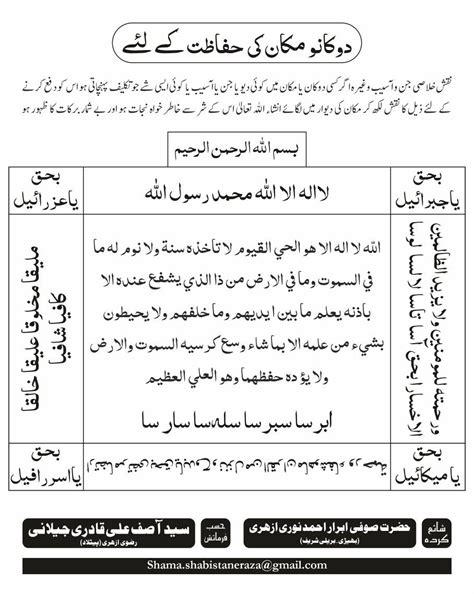 دوکان و مکان کی حفاظت کے لئے
نقش خلاصی جن و آسیب وغیرہ اگر کسی دوکان یا مکان میں کوئی دیو یا جن یا آسیب یا کوئی ایسی شے جو تکلیف پہنچاتی ہو اس کو دفع کرنے
کے لئے ذیل کا نقش لکھ کر مکان کی دیوار میں لگائے انشاء اللہ تعالیٰ اس کے شر سے خاطر خواہ نجات ہو اور بے شمار برکات کا ظہور ہو
بسم الله الرحمن الرحيم
بحق
یا جبرائیل
لا اله الا الله محمد رسول الله
بحق
یا عزرائیل
ورحمته للمومنين ولا يزيد الظالمين
الاخسارا بحق اسا تاسا لا لسا لوسا
الله لا اله الا هو الحي القيوم لا تاخذه سنة ولا نوم له ما
في السموت وما في الارض من ذا الذي يشفع عنده الا
باذنه يعلم ما بين ايديهم وما خلفهم ولا يحيطون
بشيء من علمه الا بما شاء وسع كرسيه السموت والارض
ولا يؤده حفظهما وهو العلي العظيم
ابرسا سبرسا سله سا سارسا
مليقا مخلوقا عليقا خالقا
كافيا شافيا
بحق
یا میکائیل
وننزل من القران ماهو شفاء ورحمة
بحق
یا اسرافیل
شائع کردہ
حضرت صوفی ابرار احمد نوری ازهری
(بهیڑی، بریلی شریف)
حسب فرمائش
سید آصف علی قادری جیلانی
رضوی ازهری (پیٹلاد)
Shama.shabistaneraza@gmail.com